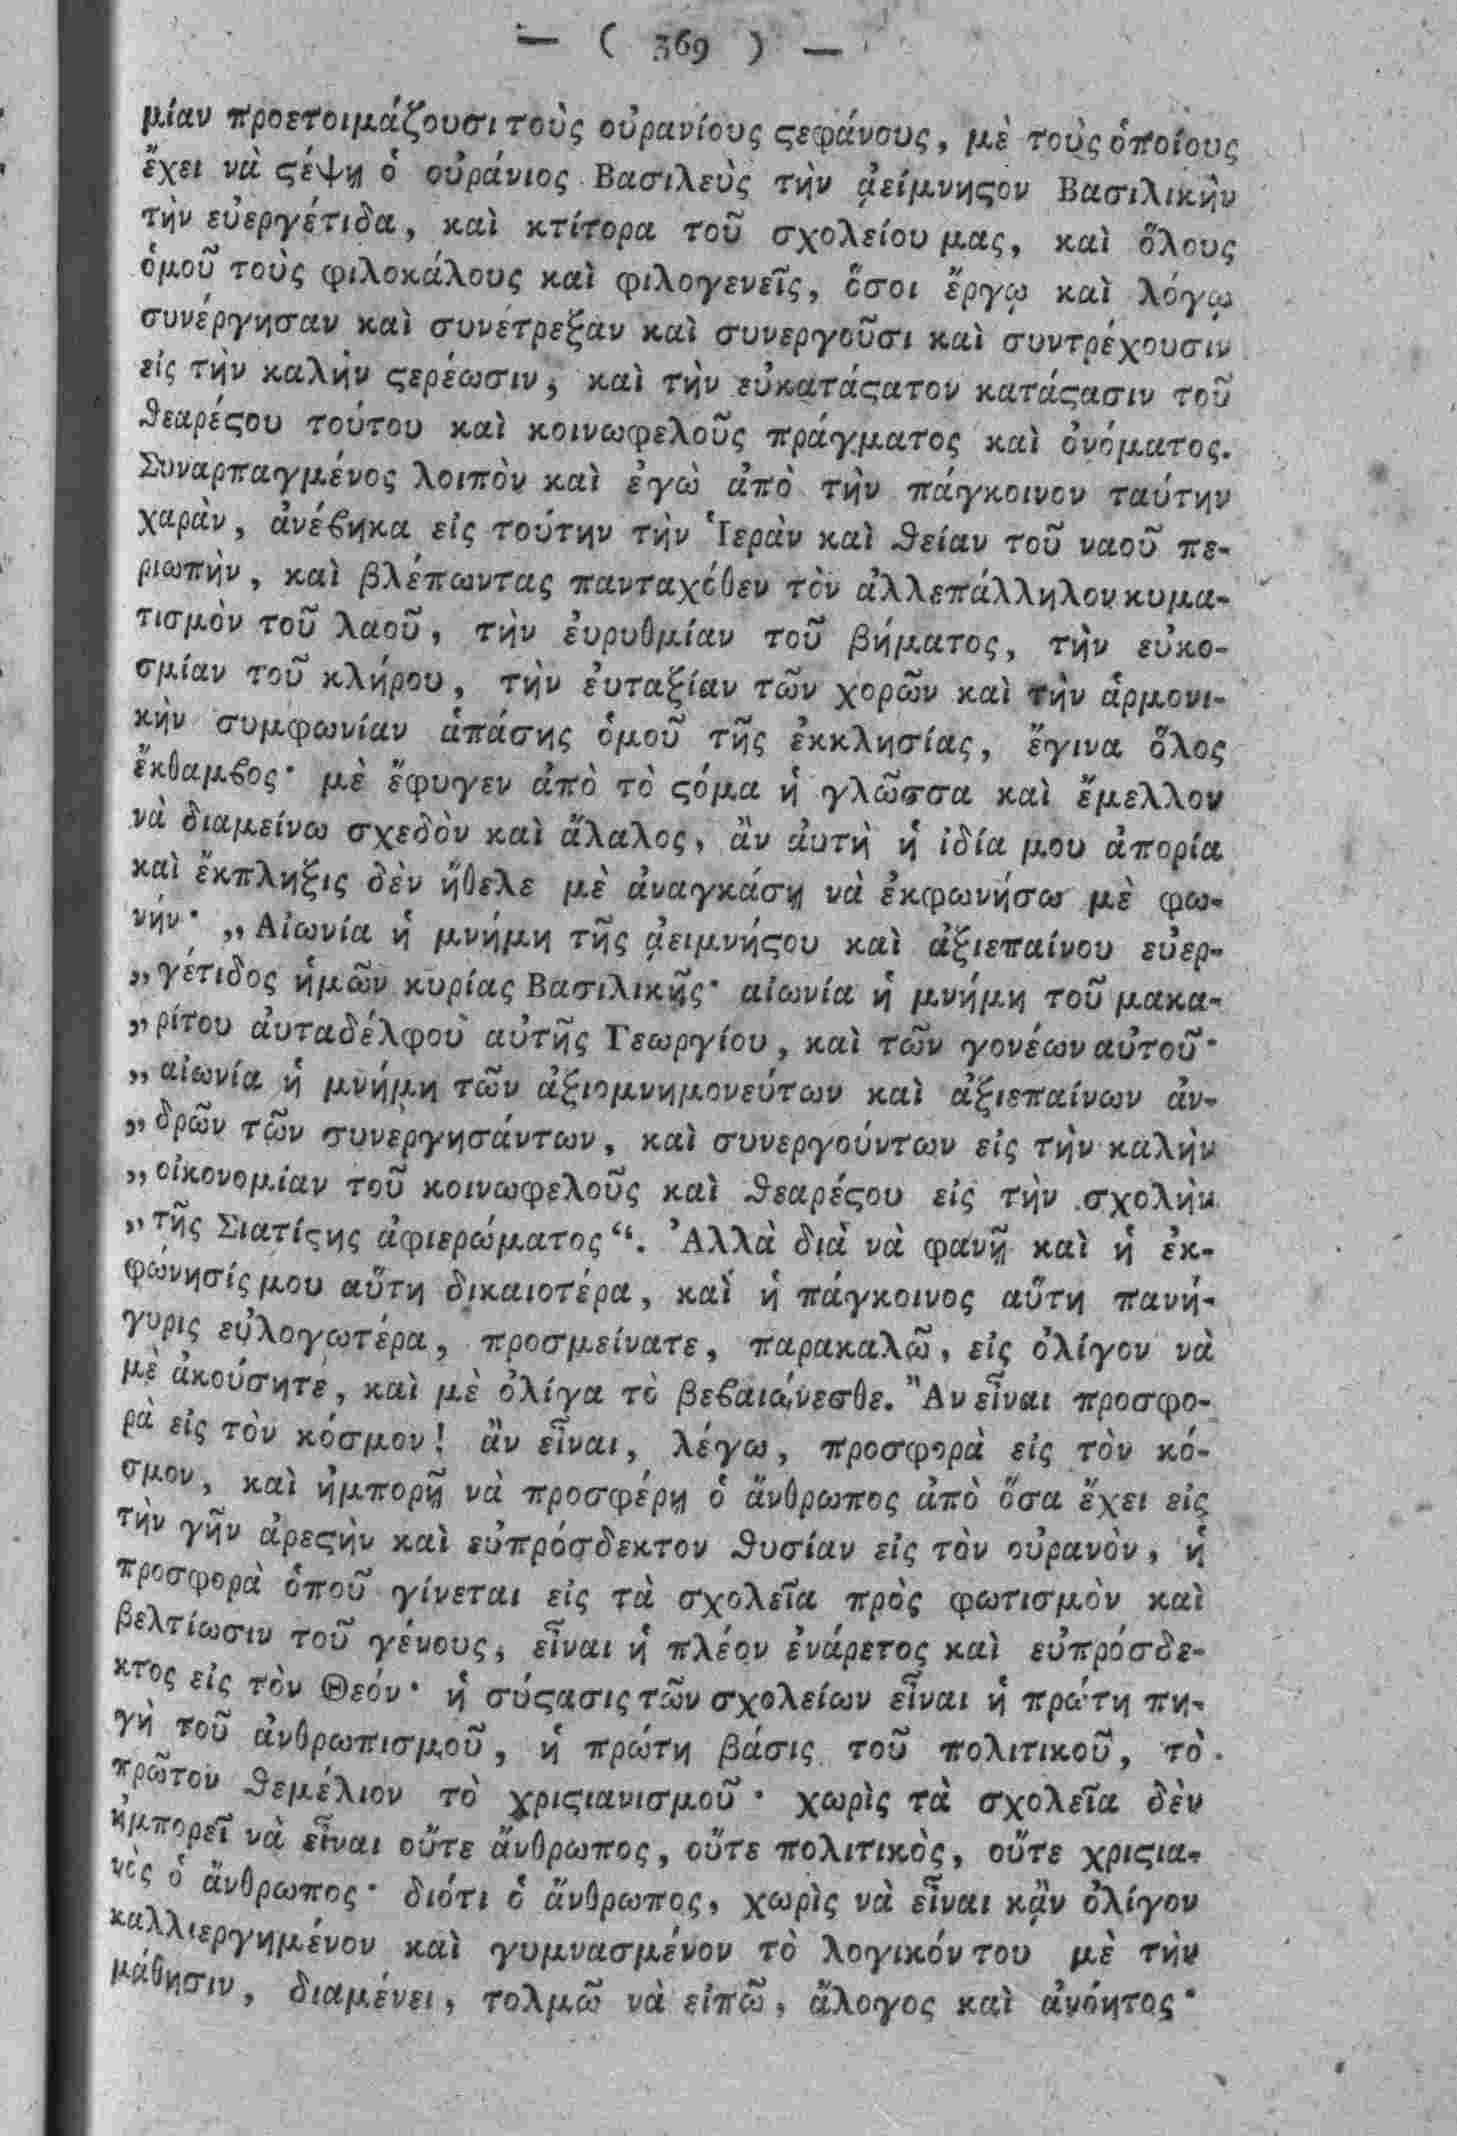 — ( 369 ) —
μίαν προετοιμάζουσι τοὺς οὐρανίους ϛεφάνους, μὲ τοὺς ὁποίους
ἔχει νὰ ϛέψῃ ὁ οὐράνιος Βασιλεὺς τὴν ἀείμνηϛον Βασιλικὴν
τὴν εὐεργέτιδα, καὶ κτίτορα τοῦ σχολείου μας, καὶ ὅλους
ὁμοῦ τοὺς φιλοκάλους καὶ φιλογενεῖς, ὅσοι ἔργῳ καὶ λόγῳ
συνέργησαν καὶ συνέτρεξαν καὶ συνεργοῦσι καὶ συντρέχουσιν
εἰς τὴν καλὴν ϛερέωσιν, καὶ τὴν εὐκατάϛατον κατάϛασιν τοῦ
ϑεαρέϛου τούτου καὶ κοινωφελοῦς πράγματος καὶ ὀνόματος.
Συναρπαγμένος λοιπὸν καὶ ἐγὼ ἀπὸ τὴν πάγκοινον ταύτην
χαρὰν, ἀνέϐηκα εἰς τούτην τὴν Ἱερὰν καὶ ϑείαν τοῦ ναοῦ πε-
ριωπὴν, καὶ βλέπωντας πανταχόθεν τὸν ἀλλεπάλληλον κυμα-
τισμὸν τοῦ λαοῦ, τὴν ἐυρυθμίαν τοῦ βήματος, τὴν εὐκο-
σμίαν τοῦ κλήρου, τὴν ἐυταξίαν τῶν χορῶν καὶ τὴν ἁρμονι-
κὴν συμφωνίαν ἁπάσης ὁμοῦ τῆς ἐκκλησίας, ἔγινα ὅλος
ἔκθαμϐος· μὲ ἔφυγεν ἀπὸ τὸ ϛόμα ἡ γλῶσσα καὶ ἔμελλον
νὰ διαμείνω σχεδὸν καὶ ἄλαλος, ἂν ἀυτὴ ἡ ἰδία μου ἀπορία
καὶ ἔκπληξις δὲν ἤθελε μὲ ἀναγκάσῃ νὰ ἐκφωνήσω μὲ φω-
νήν· „Αἰωνία ἡ μνήμη τῆς ἀειμνήϛου καὶ ἀξιεπαίνου εὐερ-
„γέτιδος ἡμῶν κυρίας Βασιλικῆς· αἰωνία ἡ μνήμη τοῦ μακα-
„ρίτου ἀυταδέλφου αὐτῆς Γεωργίου, καὶ τῶν γονέων αὐτοῦ·
„αἰωνία ἡ μνήμη τῶν ἀξιομνημονεύτων καὶ ἀξιεπαίνων ἀν-
„δρῶν τῶν συνεργησάντων, καὶ συνεργούντων εἰς τὴν καλὴν
„οἰκονομίαν τοῦ κοινωφελοῦς καὶ ϑεαρέϛου εἰς τὴν σχολὴν
„τῆς Σιατίϛης ἀφιερώματος“. Ἀλλὰ διὰ νὰ φανῇ καὶ ἡ ἐκ-
φώνησίς μου αὕτη δικαιοτέρα, καὶ ἡ πάγκοινος αὕτη πανή-
γυρις εὐλογωτέρα, προσμείνατε, παρακαλῶ, εἰς ὀλίγον νὰ
μὲ ἀκούσητε, καὶ μὲ ὀλίγα τὸ βεϐαιώνεσθε. Ἂν εἶναι προσφο-
ρὰ εἰς τὸν κόσμον! ἂν εἶναι, λέγω, προσφορὰ εἰς τὸν κό-
σμον, καὶ ἠμπορῇ νὰ προσφέρῃ ὁ ἄνθρωπος ἀπὸ ὅσα ἔχει εἰς
τὴν γῆν ἀρεϛὴν καὶ εὐπρόσδεκτον ϑυσίαν εἰς τὸν οὐρανὸν, ἡ
προσφορὰ ὁποῦ γίνεται εἰς τὰ σχολεῖα πρὸς φωτισμὸν καὶ
βελτίωσιν τοῦ γένους, εἶναι ἡ πλέον ἐνάρετος καὶ εὐπρόσδε-
κτος εἰς τὸν Θεόν· ἡ σύϛασις τῶν σχολείων εἶναι ἡ πρώτη πη-
γὴ τοῦ ἀνθρωπισμοῦ, ἡ πρώτη βάσις τοῦ πολιτικοῦ, τὸ
πρῶτον ϑεμέλιον τὸ χριϛιανισμοῦ· χωρὶς τὰ σχολεῖα δὲν
ἠμπορεῖ νὰ εἶναι οὔτε ἄνθρωπος, οὔτε πολιτικὸς, οὔτε χριϛια-
νὸς ὁ ἄνθρωπος· διότι ὁ ἄνθρωπος, χωρὶς νὰ εἶναι κᾂν ὀλίγον
καλλιεργημένον καὶ γυμνασμένον τὸ λογικόν του μὲ τὴν
μάθησιν, διαμένει, τολμῶ νὰ εἰπῶ, ἄλογος καὶ ἀνόητος·